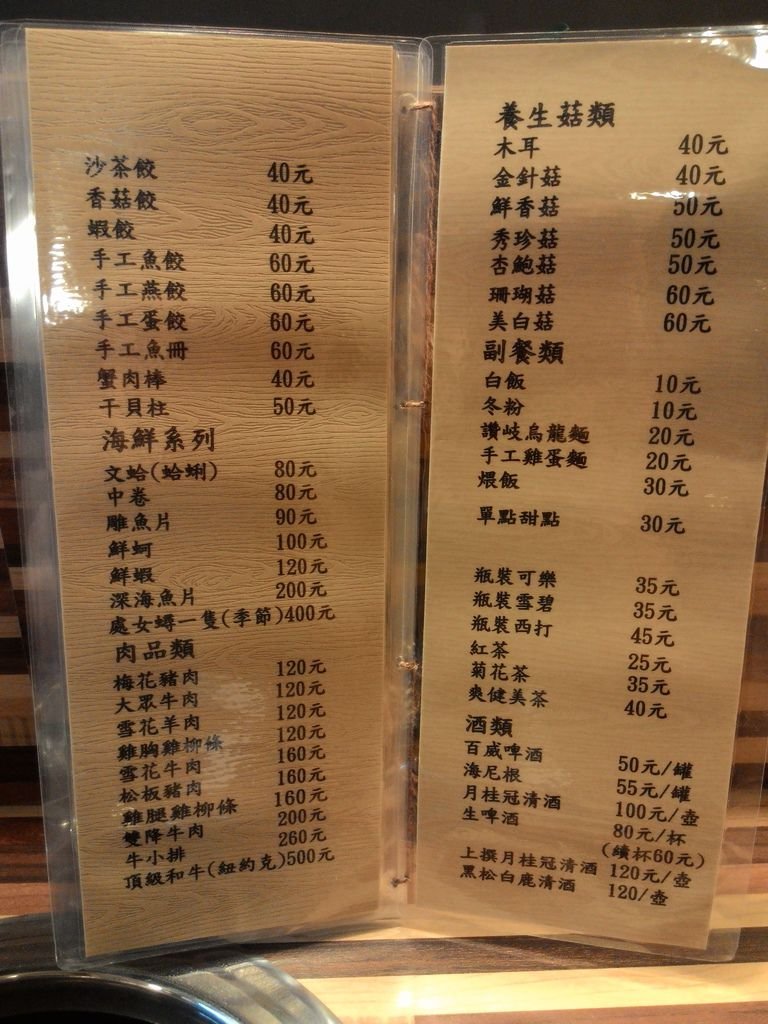 沙茶餃 40元
香菇餃 40元
蝦餃 40元
手工魚餃 60元
手工燕餃 60元
手工蛋餃 60元
手工魚冊 60元
蟹肉棒 40元
干貝柱 50元
海鮮系列
文蛤(蛤蜊) 80元
中卷 80元
雕魚片 90元
鮮蚵 100元
鮮蝦 120元
深海魚片 200元
處女蟳一隻(季節)400元
肉品類
梅花豬肉 120元
大眾牛肉 120元
雪花羊肉 120元
雞胸雞柳條 120元
雪花牛肉 160元
松板豬肉 160元
雞腿雞柳條 160元
雙降牛肉 200元
牛小排 260元
頂級和牛(紐約克)500元
養生菇類
木耳 40元
金針菇 40元
鮮香菇 50元
秀珍菇 50元
杏鮑菇 50元
珊瑚菇 60元
美白菇 60元
副餐類
白飯 10元
冬粉 10元
讚岐烏龍麵 20元
手工雞蛋麵 20元
煨飯 30元
單點甜點 30元
瓶裝可樂 35元
瓶裝雪碧 35元
瓶裝西打 45元
紅茶 25元
菊花茶 35元
爽健美茶 40元
酒類
百威啤酒 50元/罐
海尼根 55元/罐
月桂冠清酒 100元/壺
生啤酒 80元/杯
(續杯60元)
上撰月桂冠清酒 120元/壺
黑松白鹿清酒 120/壺